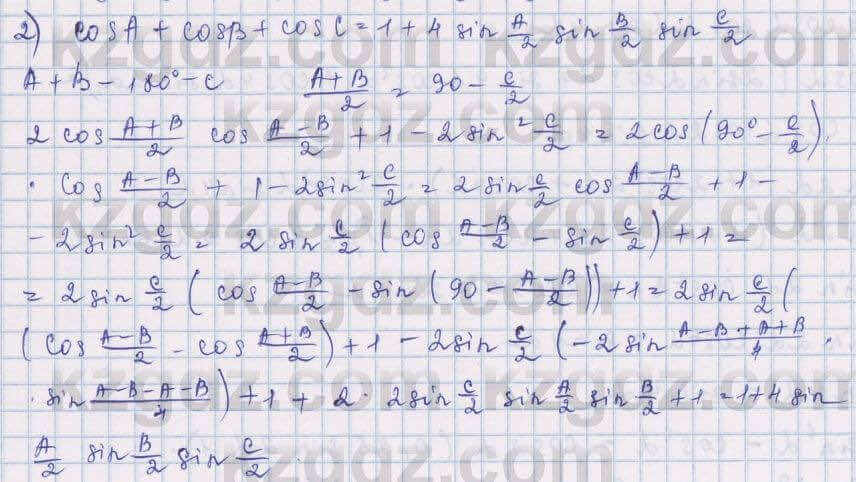 2) cosA + cosB + cosC = 1 + 4 sin A/2 sin B/2 sin C/2
A + B - 180° - C (A+B)/2 = 90 - C/2
2 cos (A+B)/2 cos (A-B)/2 + 1 - 2 sin² C/2 = 2 cos (90° - C/2) ·
· cos (A-B)/2 + 1 - 2 sin² C/2 = 2 sin C/2 cos (A-B)/2 + 1 -
- 2 sin² C/2 = 2 sin C/2 (cos (A-B)/2 - sin C/2) + 1 =
= 2 sin C/2 (cos (A-B)/2 - sin (90 - (A-B)/2)) + 1 = 2 sin C/2 (
(cos (A-B)/2 - cos (A+B)/2) + 1 - 2 sin C/2 (-2 sin (A-B+A+B)/4 ·
· sin (A-B-A-B)/4) + 1 + 2 · 2 sin C/2 sin A/2 sin B/2 + 1 = 1 + 4 sin
A/2 sin B/2 sin C/2 .
kzgdz.com